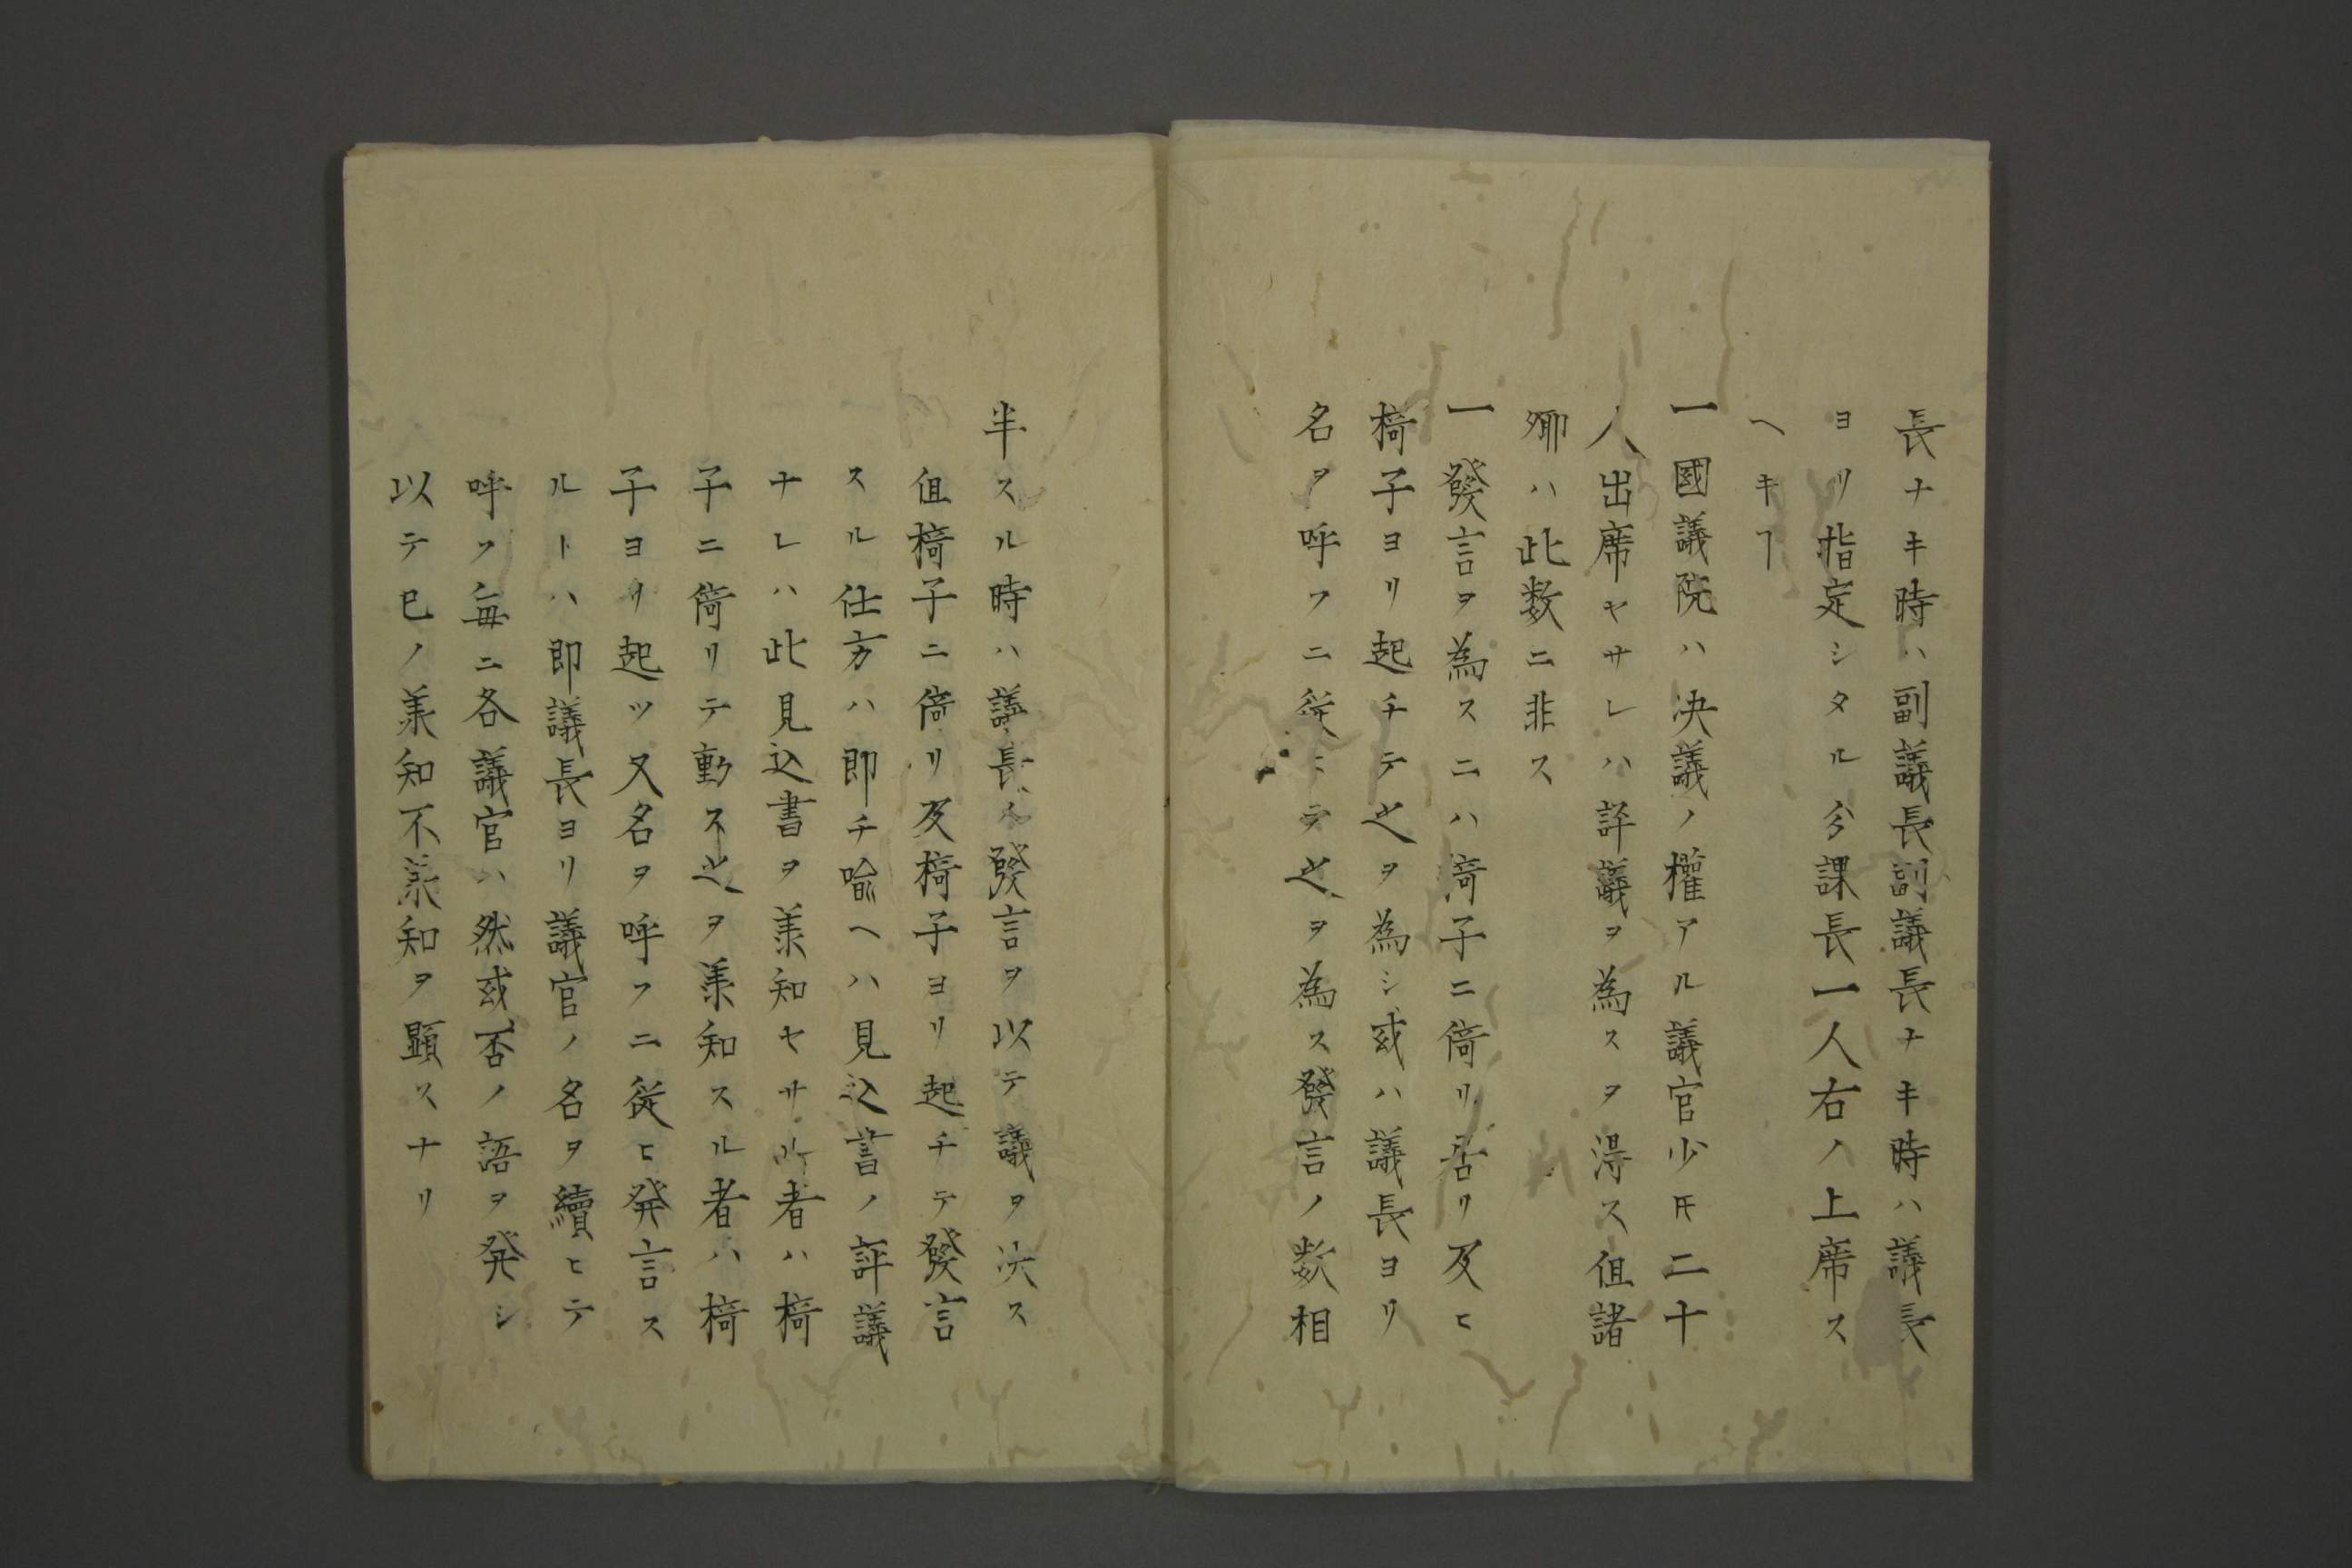 長ナキ時ハ副議長副議長ナキ時ハ議長
ヨリ指定シタル分課長一人右ノ上席ス
ヘキヿ
一國議院ハ决議ノ權アル議官少𪜈二十
人出席セサレハ評議ヲ為スヲ得ス但諸
卿ハ此数ニ非ス
一發言ヲ為スニハ椅子ニ倚リ居リ及ヒ
椅子ヨリ起チテ之ヲ為シ或ハ議長ヨリ
名ヲ呼フニ従ヒテ之ヲ為ス發言ノ数相
半スル時ハ議長ノ發言ヲ以テ議ヲ决ス
但椅子ニ倚リ及椅子ヨリ起チテ發言
スル仕方ハ即チ喩ヘハ見込書ノ評議
ナレハ此見込書ヲ羕知セサル者ハ椅
子ニ倚リテ動ス之ヲ羕知スル者ハ椅
子ヨリ起ツ又名ヲ呼フニ従ヒ発言ス
ルトハ即議長ヨリ議官ノ名ヲ續ヒテ
呼フ毎ニ各議官ハ然或否ノ語ヲ発シ
以テ已ノ羕知不羕知ヲ顕スナリ